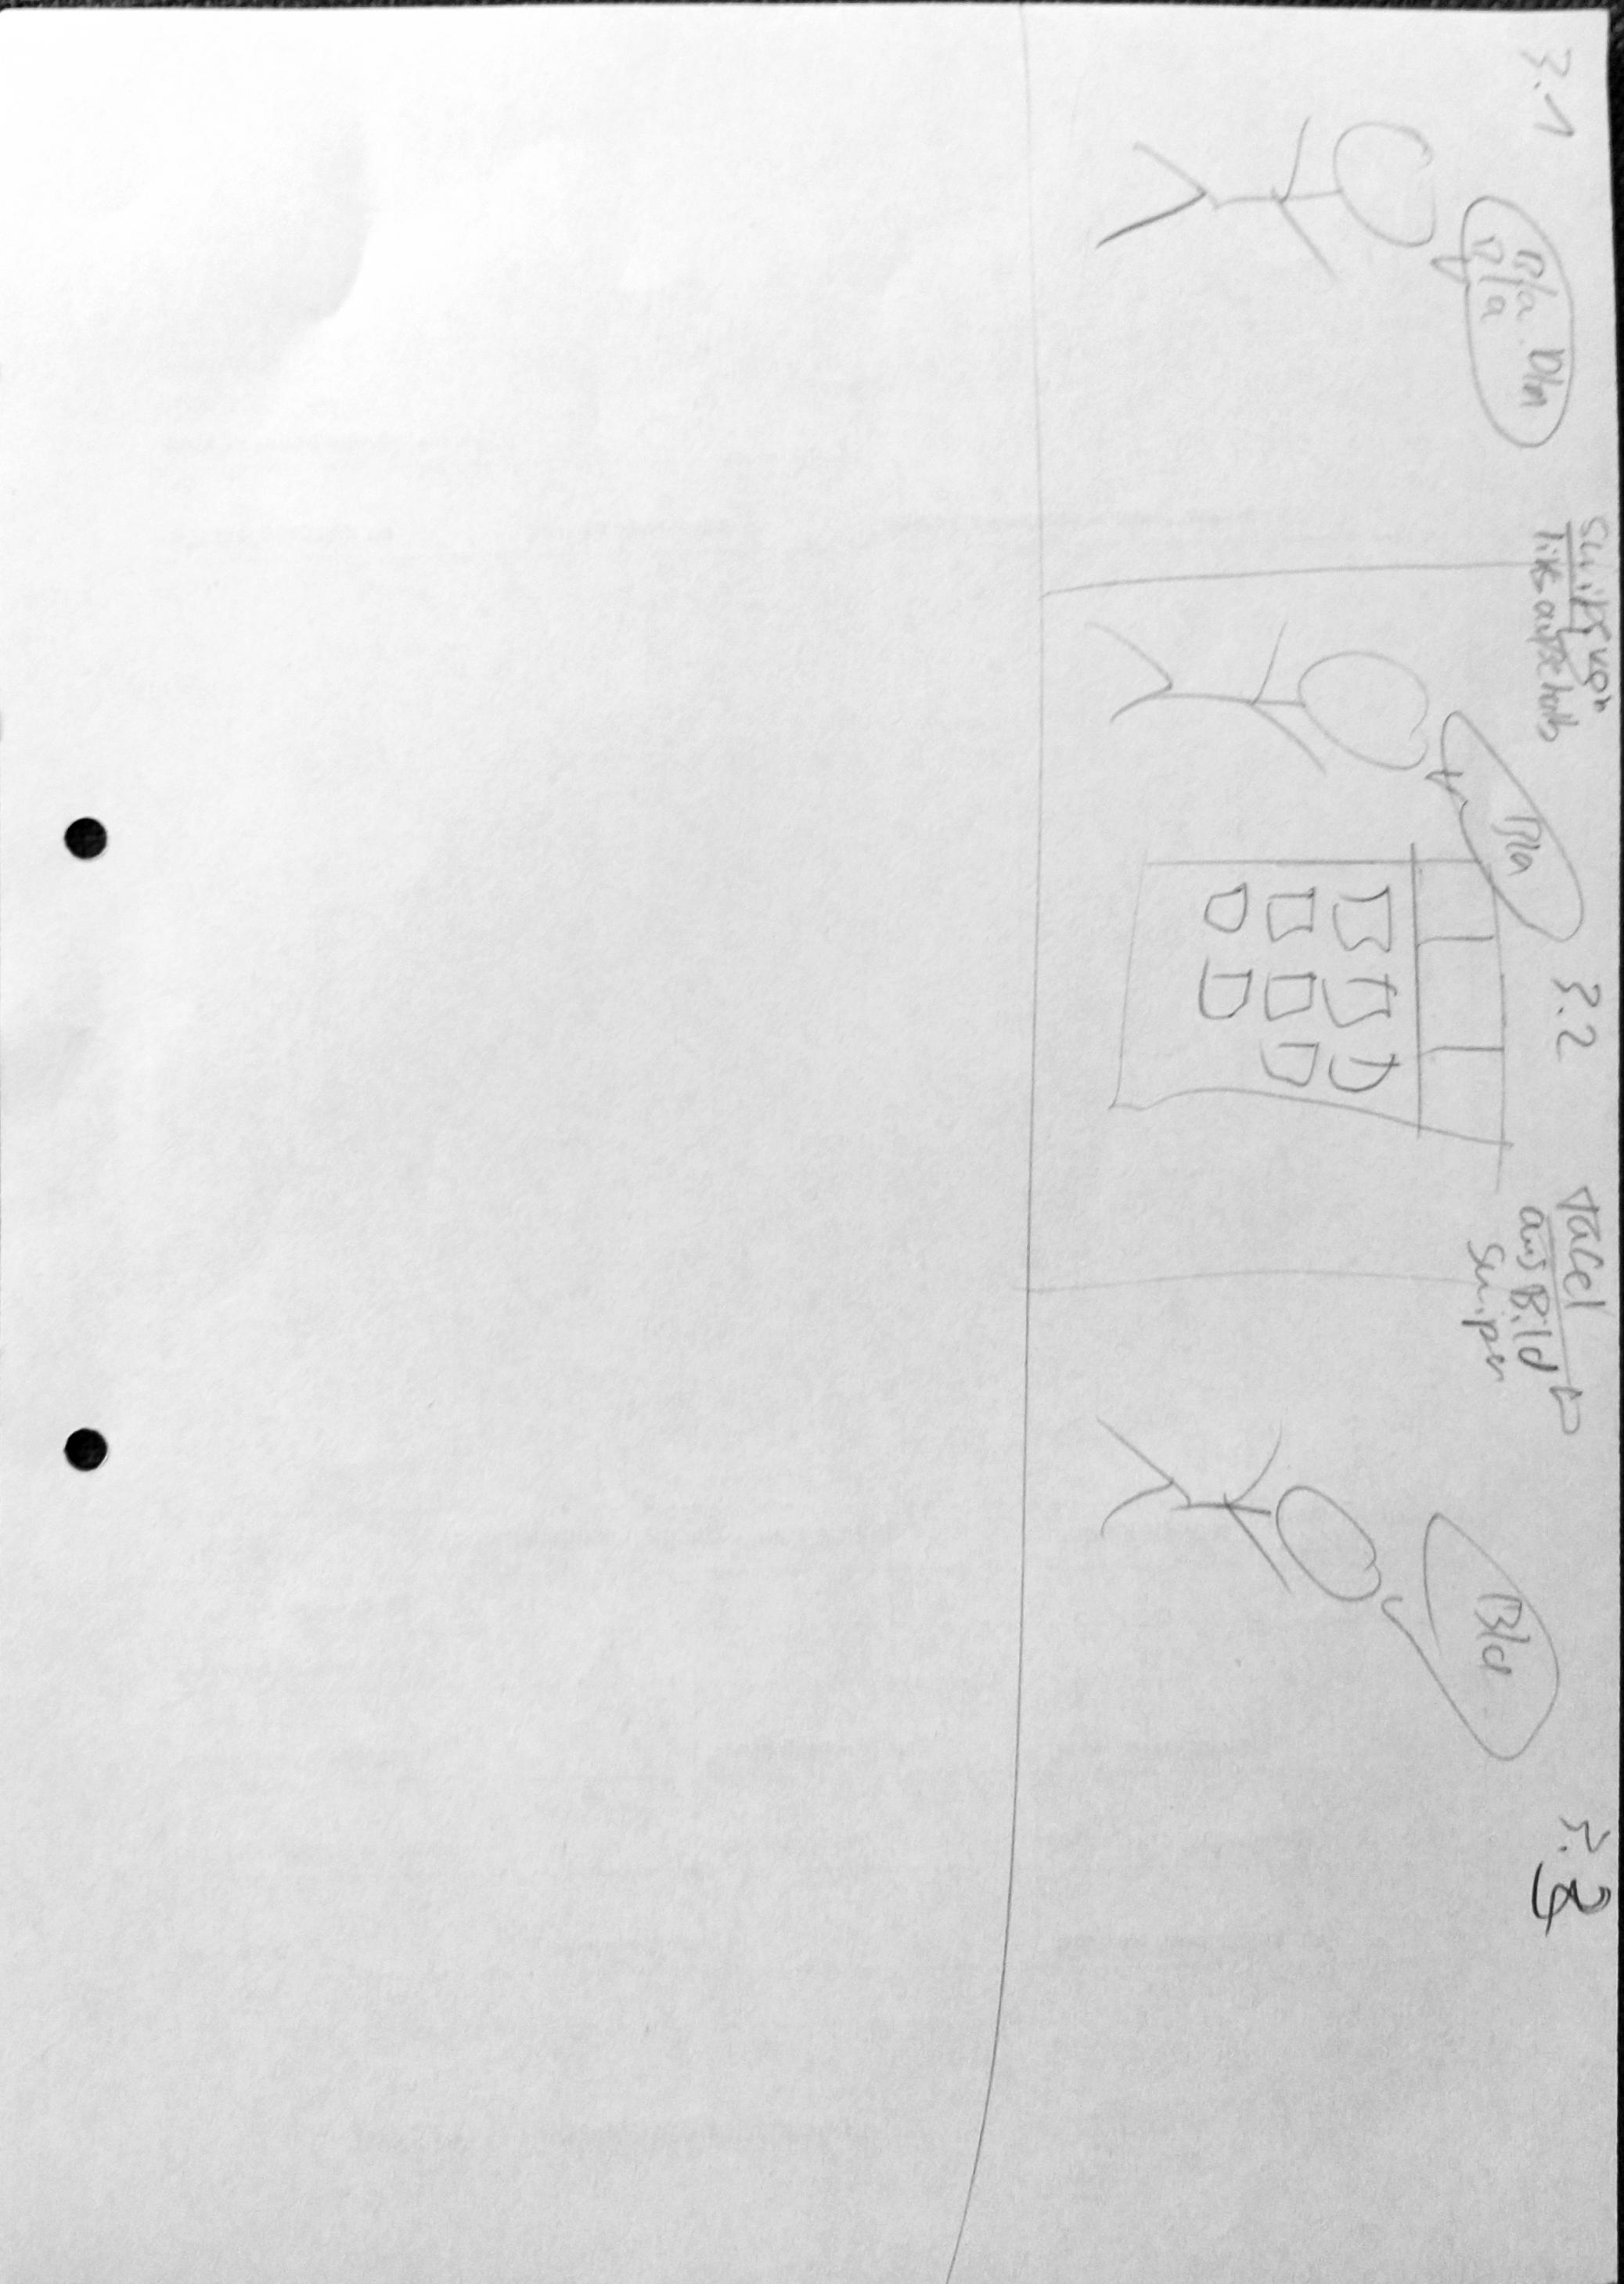 3.1
Bla Bla
Bla
Swipe von
links außerhalb
Bla
3.2
Tafel
aus Bild
Swipen
Bla
3.3